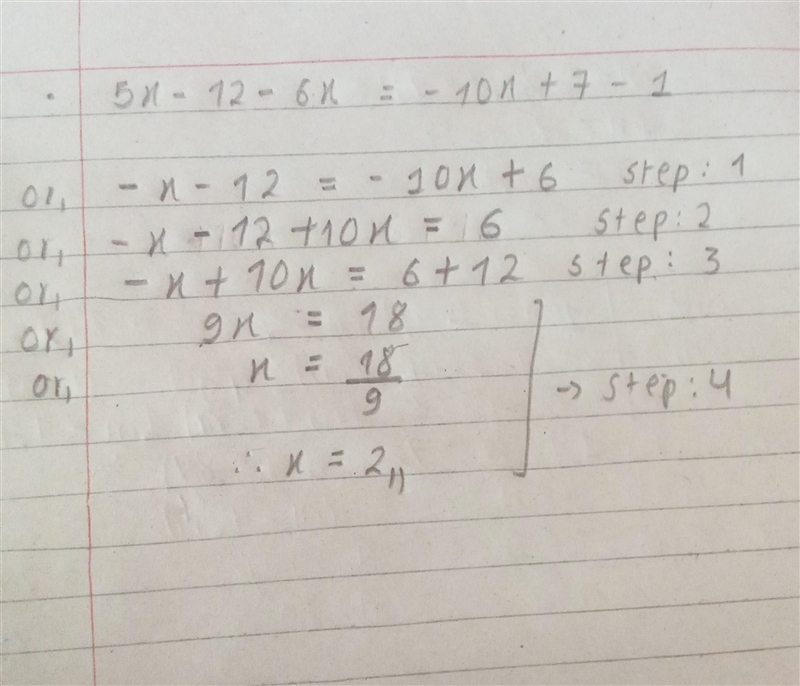 5x - 12 - 6x = - 10x + 7 - 1
or, - x - 12 = - 10x + 6 step: 1
or, - x - 12 + 10x = 6 step: 2
or, - x + 10x = 6 + 12 step: 3
or, 9x = 18
or, x = 18/9 → step: 4
∴ x = 2,,